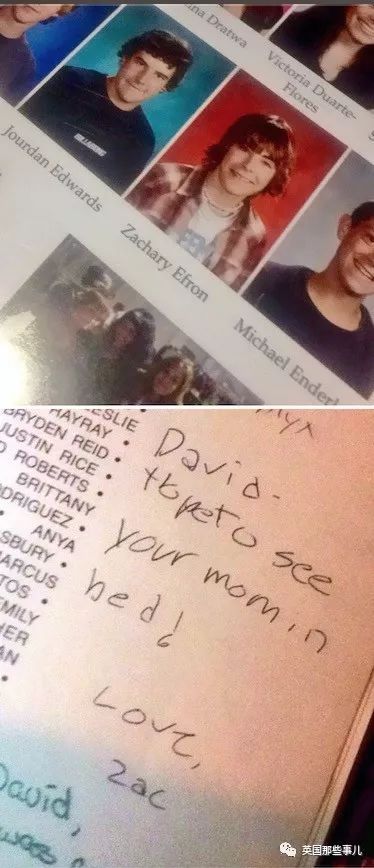 na Dratwa
Victoria Duarte-
Flores
BILLABONG
Jourdan Edwards
Zachary Efron
Michael Enderl
LESLIE
HAYRAY •
BRYDEN REID •
JUSTIN RICE •
ROBERTS •
BRITTANY
ODRIGUEZ •
ANYA
SBURY •
MARCUS
TOS •
EMILY
HER
AN
David-
Hope to see
your mom in
bed!
Love,
Zac
David,
英国那些事儿